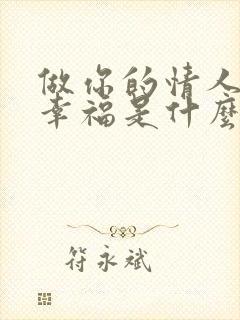 做你的情人
幸福是什麼
符永斌